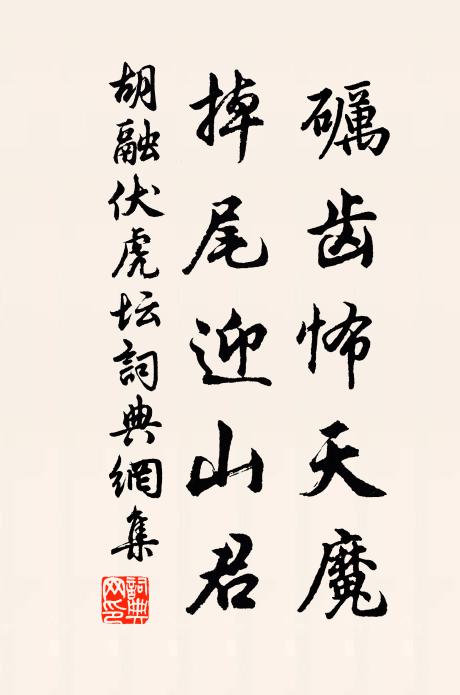 礪齿怖天魔
掉尾迎山君
胡融伏虎坛詞典網集
詞典网印